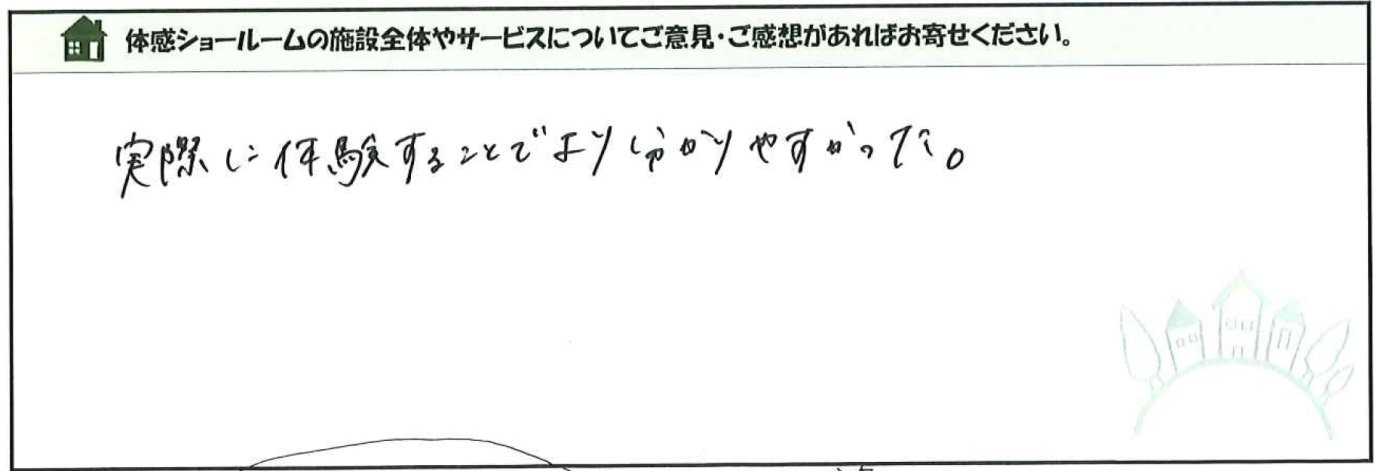 体感ショールームの施設全体やサービスについてご意見・ご感想があればお寄せください。
実際に体験することでより分かりやすかった。